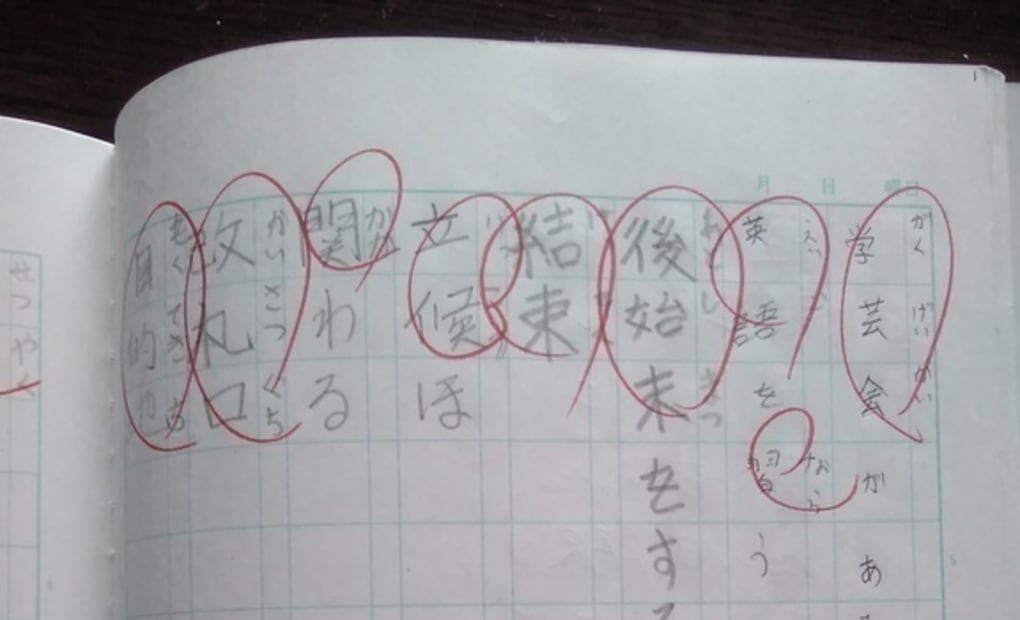 月 日 曜日
学芸会があ
がくげいかい
英語を習う
えいご なら
後始末をす
結束
立候ほ
関わる
かか
改札口
かいさつぐち
目的地
もくてき
せつや